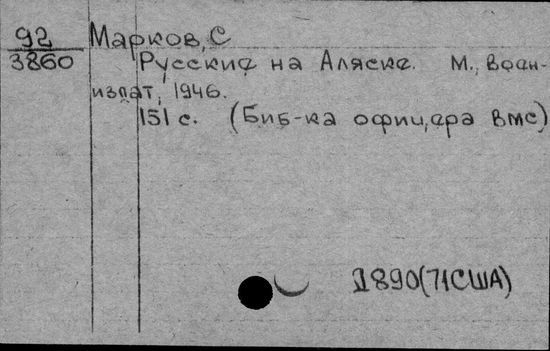 92
3860
Марков, С
Русские на Аляске. М., Воен-
издат, 1946.
151 с. (Биб-ка офицера ВМС)
Д890(71США)